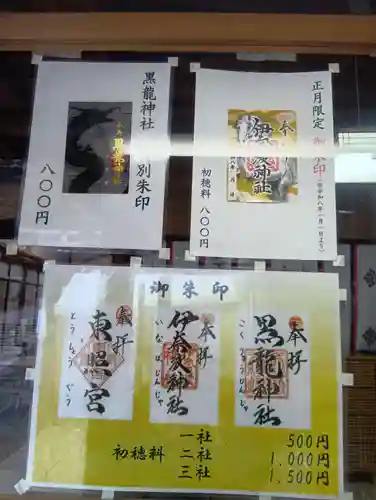 黒龍神社 別朱印
八〇〇円
正月限定 御朱印
(令和八年一月一日より)
奉拝
伊奈波神社
初穂料 八〇〇円
御朱印
奉拝
黒龍神社
こくりゅうじんじゃ
奉拝
伊奈波神社
いなばじんじゃ
奉拝
東照宮
とうしょうぐう
初穂料
一社 500円
二社 1,000円
三社 1,500円